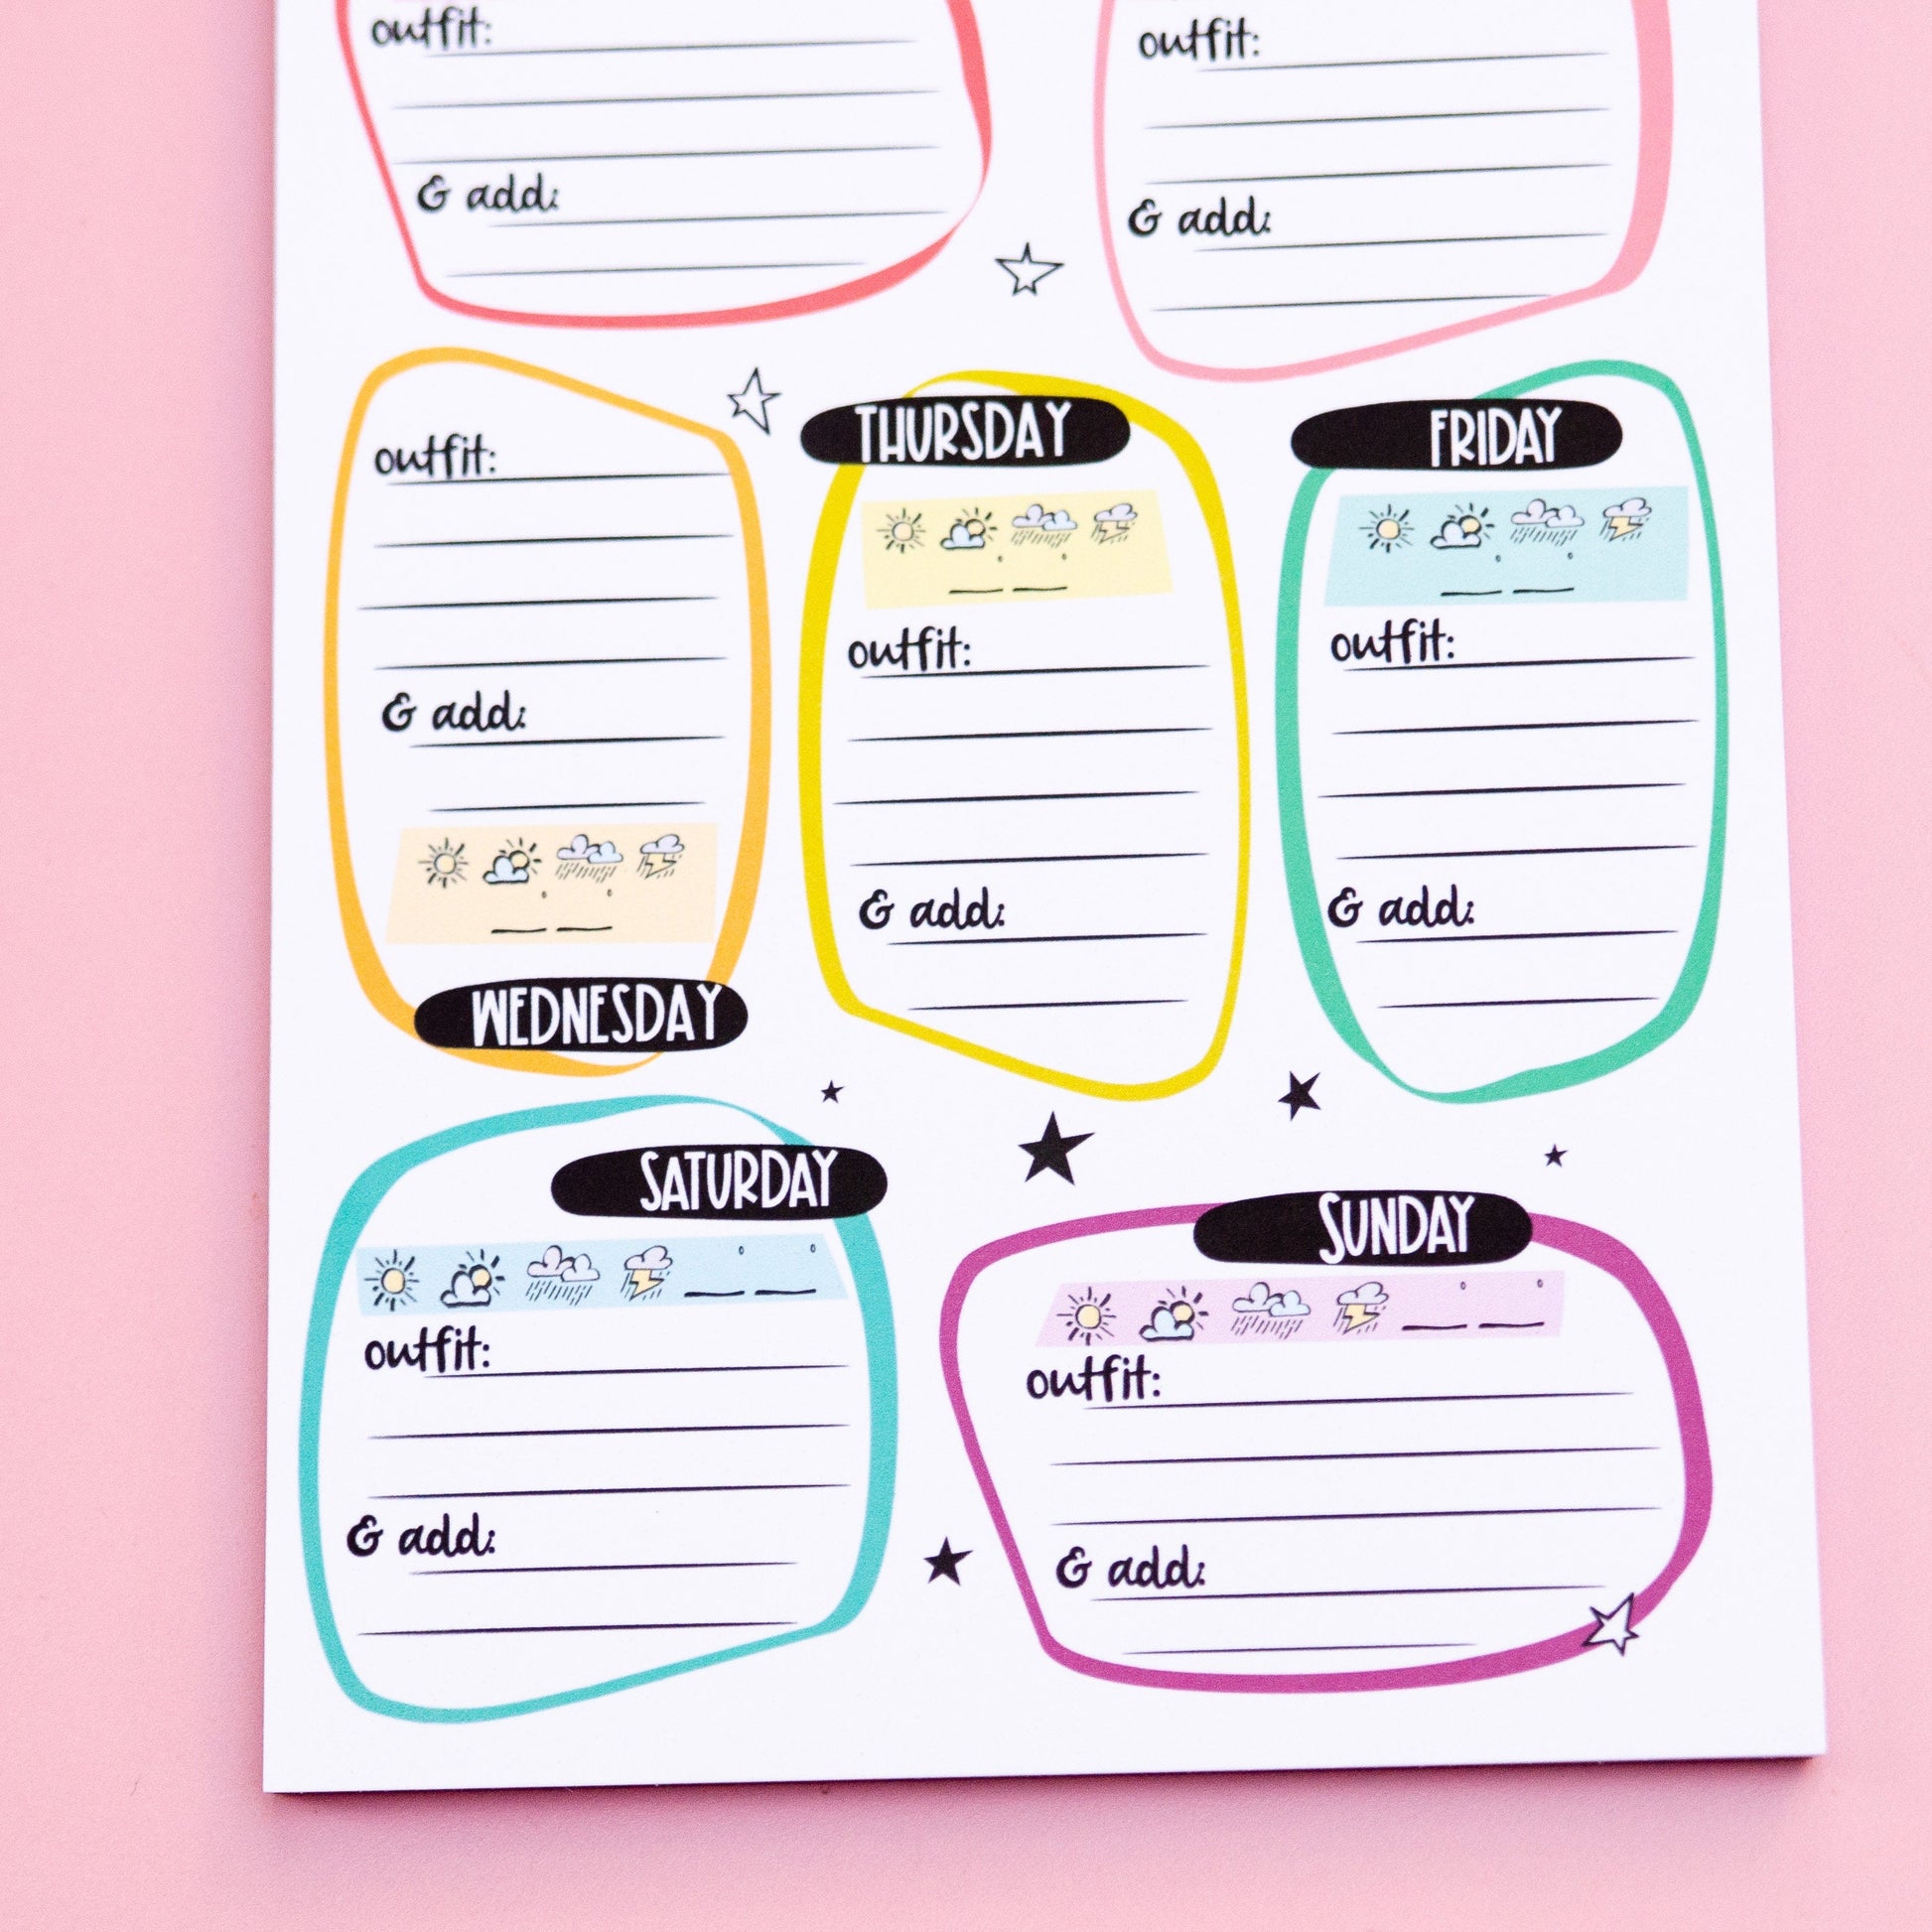 outfit:
& add:
outfit:
& add:
outfit:
& add:
WEDNESDAY
THURSDAY
outfit:
& add:
FRIDAY
outfit:
& add:
SATURDAY
outfit:
& add:
SUNDAY
outfit:
& add: